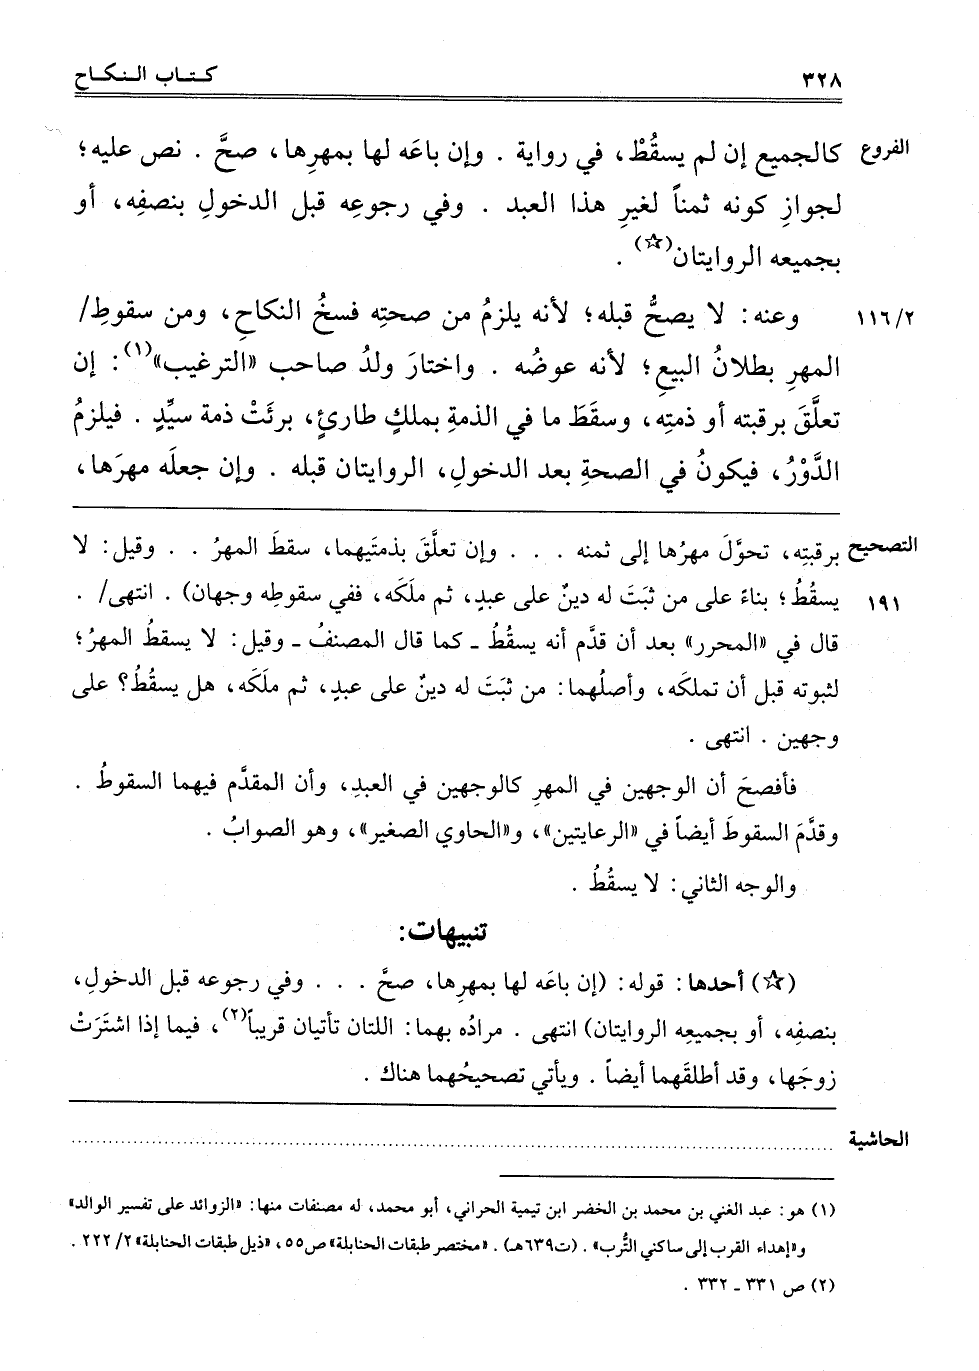 ٣٢٨ كـتـاب الـنـكـاح
الفروع كالجميع إن لم يسقُطْ، في رواية . وإن باعَه لها بمهرِها، صحَّ . نص عليه؛
لجوازِ كونه ثمناً لغيرِ هذا العبد . وفي رجوعِه قبل الدخولِ بنصفِه، أو
بجميعه الروايتان(☆) .
١١٦/٢ وعنه: لا يصحُّ قبله؛ لأنه يلزمُ من صحتِه فسخُ النكاحِ، ومن سقوطِ/
المهرِ بطلانُ البيعِ؛ لأنه عوضُه . واختارَ ولدُ صاحب «الترغيب»(١): إن
تعلَّقَ برقبته أو ذمتِه، وسقَطَ ما في الذمةِ بملكٍ طارئٍ، برئَتْ ذمة سيِّدٍ . فيلزمُ
الدَّوْرُ، فيكونُ في الصحةِ بعد الدخولِ، الروايتان قبله . وإن جعلَه مهرَها،
التصحيح برقبتِه، تحوَّلَ مهرُها إلى ثمنه . . . وإن تعلَّقَ بذمتَيهما، سقطَ المهرُ . . وقيل: لا
١٩١ يسقُطُ؛ بناءً على من ثبَتَ له دينٌ على عبدٍ، ثم ملَكَه، ففي سقوطِه وجهان) . انتهى/ .
قال في «المحرر» بعد أن قدَّم أنه يسقُطُ ـ كما قال المصنفُ ـ وقيل: لا يسقطُ المهرُ؛
لثبوته قبل أن تملكَه، وأصلُهما: من ثبَتَ له دينٌ على عبدٍ، ثم ملَكَه، هل يسقُطُ؟ على
وجهين . انتهى .
فأفصحَ أن الوجهين في المهرِ كالوجهين في العبدِ، وأن المقدَّم فيهما السقوطُ .
وقدَّمَ السقوطَ أيضاً في «الرعايتين»، و«الحاوي الصغير»، وهو الصوابُ .
والوجه الثاني: لا يسقُطُ .
تنبيهات:
(☆) أحدها: قوله: (إن باعَه لها بمهرِها، صحَّ . . . وفي رجوعه قبل الدخولِ،
بنصفِه، أو بجميعِه الروايتان) انتهى . مرادُه بهما: اللتان تأتيان قريباً(٢)، فيما إذا اشتَرَتْ
زوجَها، وقد أطلقَهما أيضاً . ويأتي تصحيحُهما هناك .
الحاشية ................................................................
(١) هو: عبد الغني بن محمد بن الخضر ابن تيمية الحراني، أبو محمد، له مصنفات منها: «الزوائد على تفسير الوالد»
و«إهداء القرب إلى ساكني التُّرب» . (ت٦٣٩هـ) . «مختصر طبقات الحنابلة» ص٥٥، «ذيل طبقات الحنابلة» ٢/ ٢٢٢ .
(٢) ص ٣٣١ ـ ٣٣٢ .